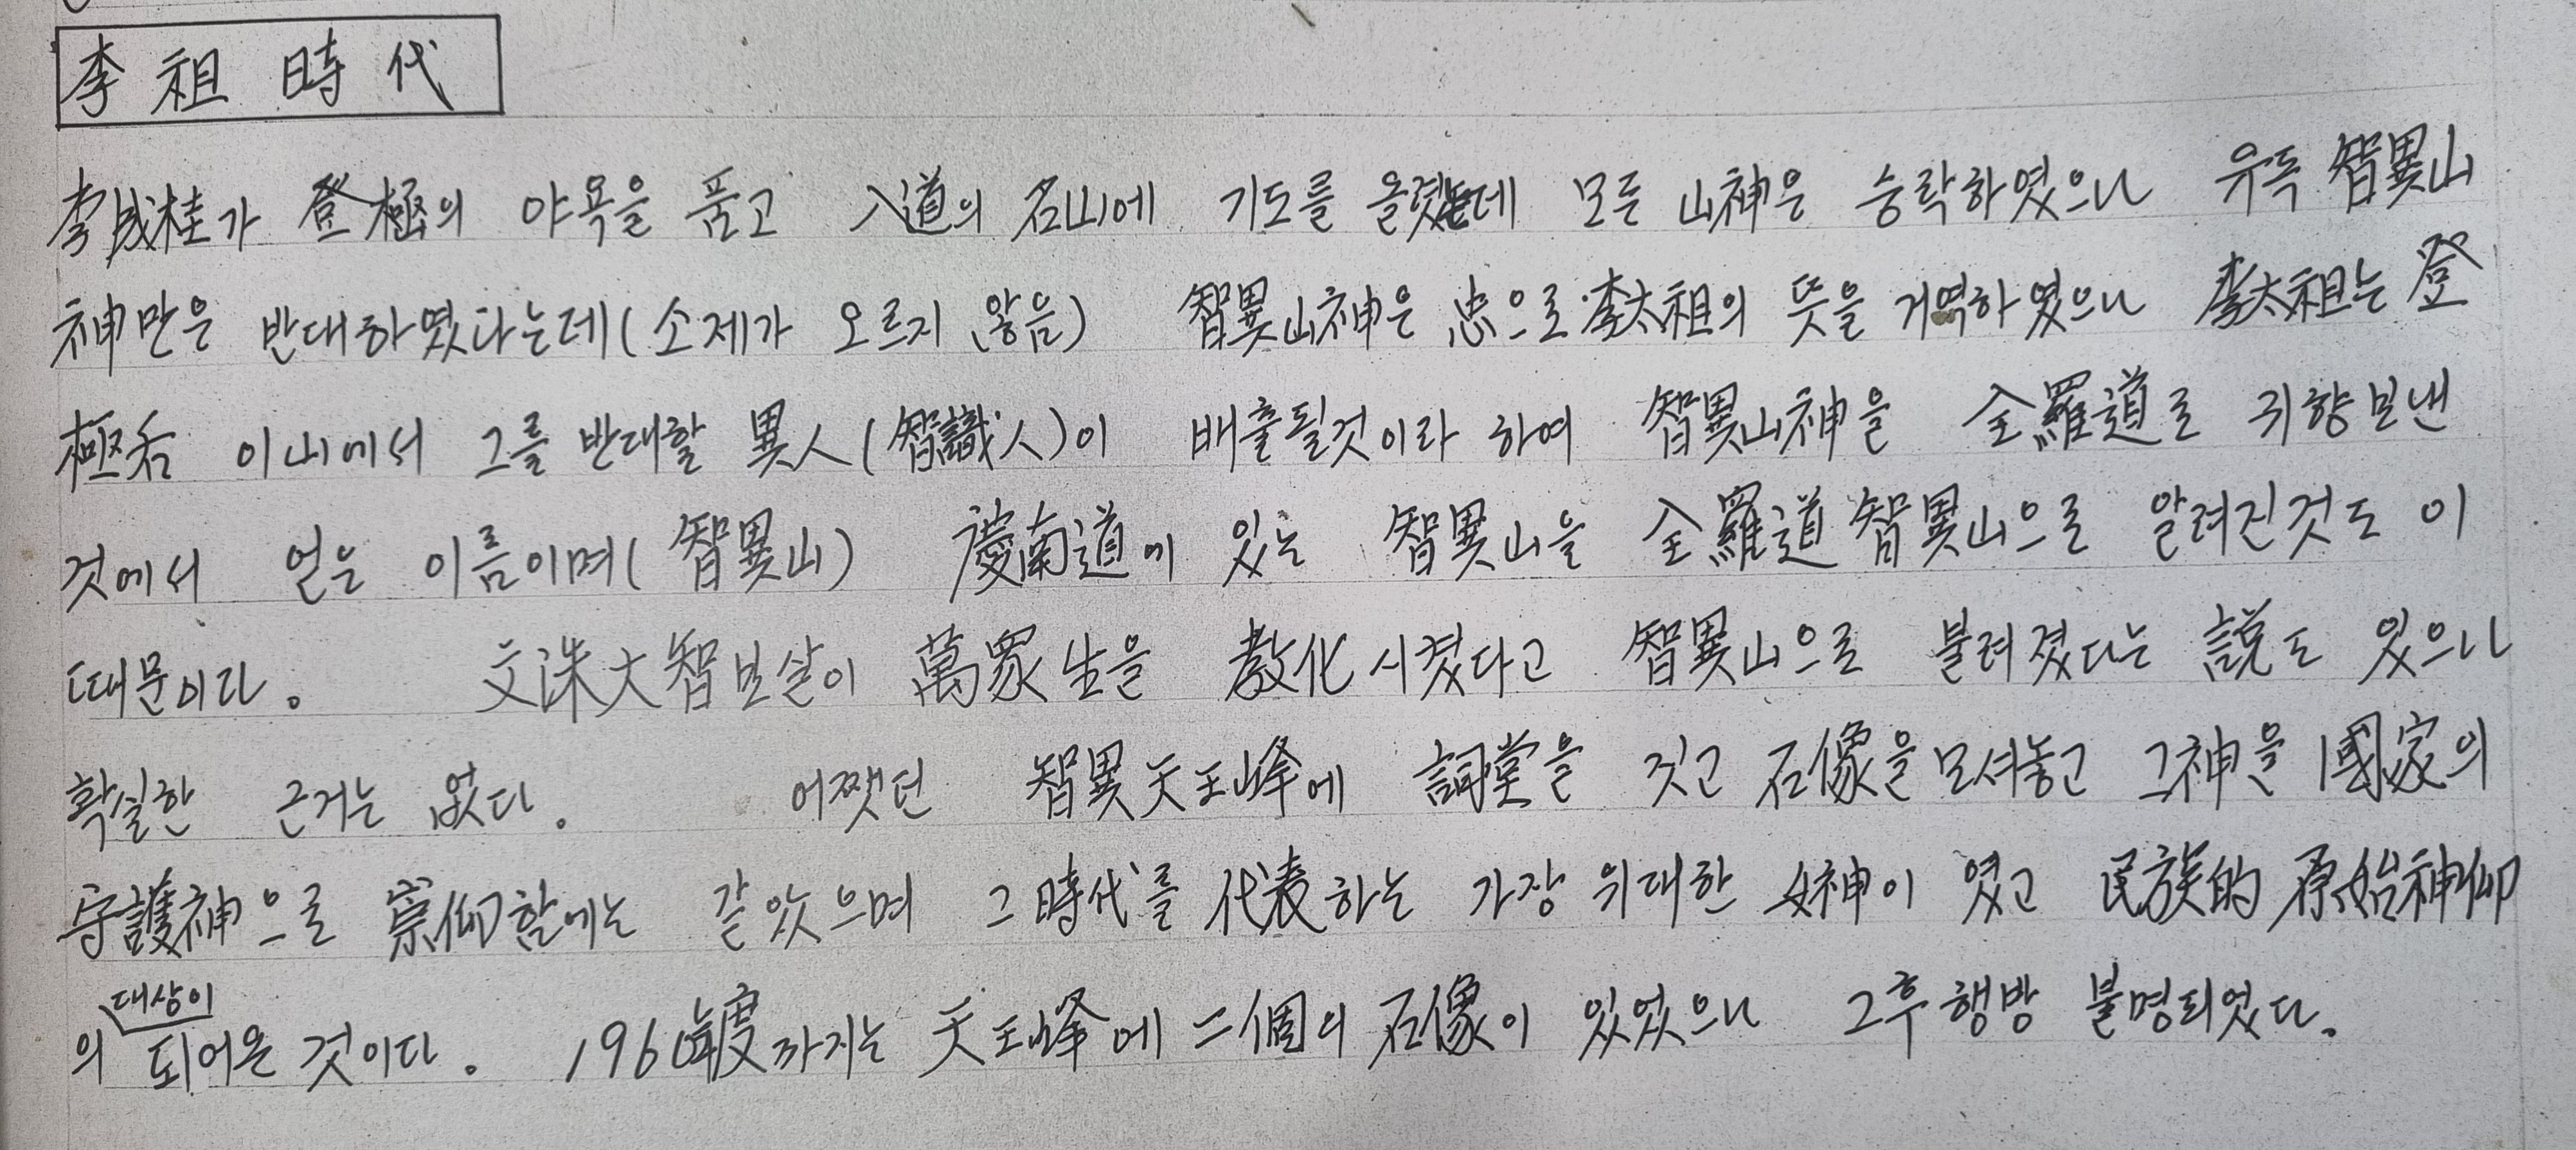 李祖時代
李成桂가 登極의 야욕을 품고 八道의 名山에 기도를 올렸는데 모든 山神은 승락하였으나 유독 智異山
神만은 반대하였다는데(소제가 오르지 않음) 智異山神은 忠으로 李太祖의 뜻을 거역하였으나 李太祖는 登
極后 이山에서 그를 반대할 異人(智識人)이 배출될것이라 하여 智異山神을 全羅道로 귀향보낸
것에서 얻은 이름이며(智異山) 慶南道에 있는 智異山을 全羅道智異山으로 알려진것도 이
때문이다. 文洙大智보살이 萬衆生을 敎化시켰다고 智異山으로 불려졌다는 說도 있으나
확실한 근거는 없다. 어쨋던 智異天王峰에 詞堂을 짓고 石像을 모셔놓고 그神을 國家의
守護神으로 崇仰함에는 같았으며 그時代를 代表하는 가장 위대한 女神이 였고 民族的 原始神仰
의 대상이 되어온 것이다. 1960年度까지는 天王峰에 二個의 石像이 있었으나 그후 행방 불명되었다.